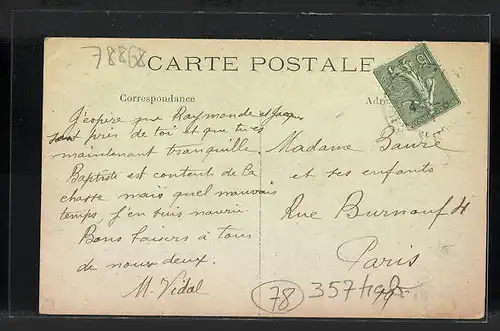 78868
CARTE POSTALE
Correspondance
J'espère que Raymonde et Jacques
sont près de toi et que tu es
maintenant tranquille.
Baptiste est content de la
chasse mais quel mauvais
temps, j'en suis navrée.
Bons baisers à tous
de nous deux.
M. Vidal
Madame Bauré
et ses enfants
Rue Burnouf
Paris
78